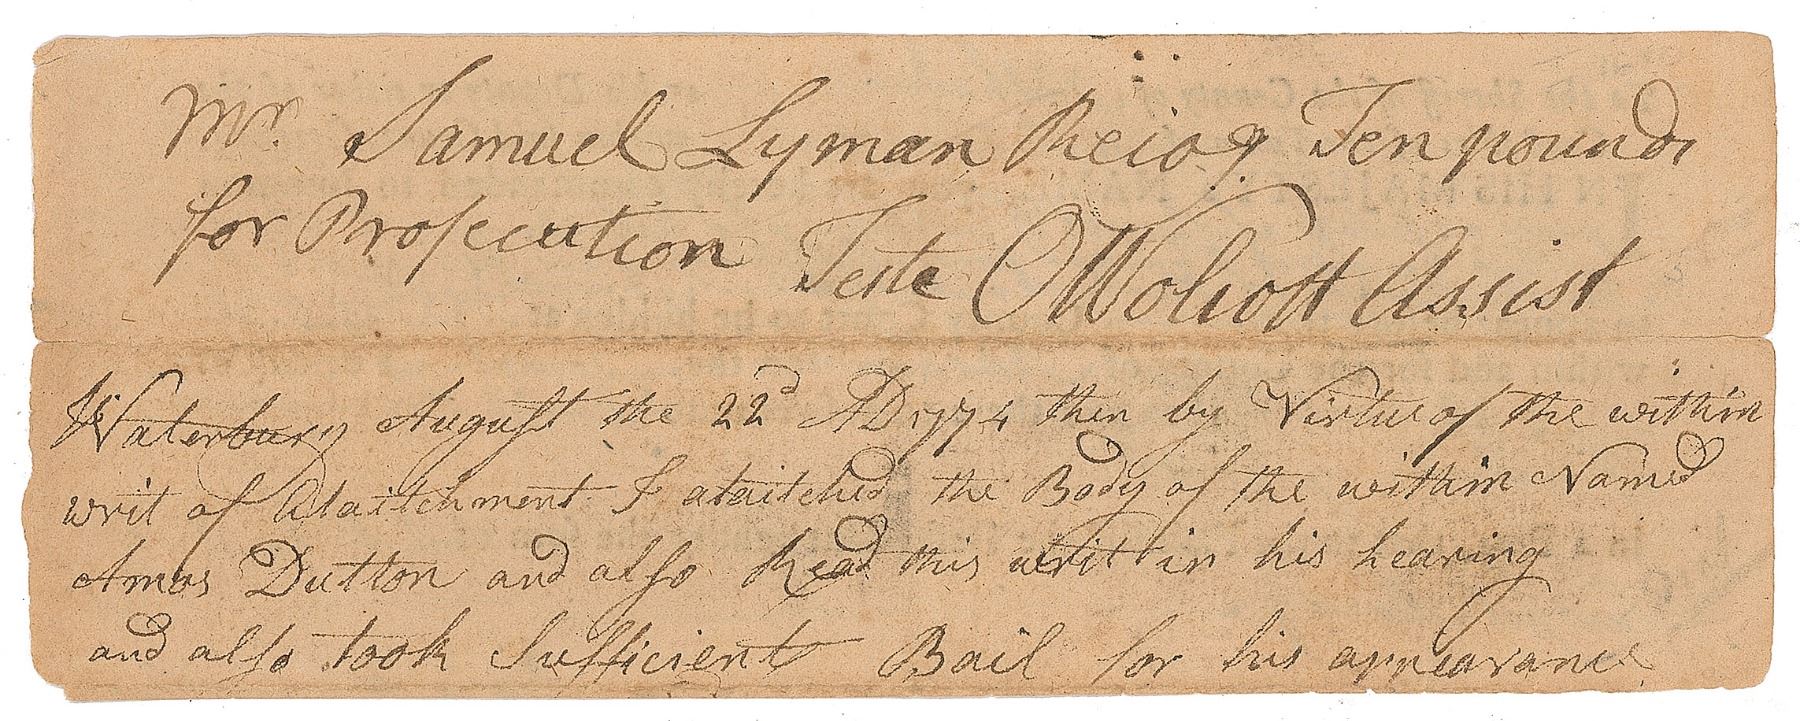 Mr. Samuel Lyman Recog Ten pounds
for Prosecution Teste OWolcott Assist
Waterbury August the 22d AD 1774 then by Virtue of the within
writ of Attaitchment I attaitched the Body of the within Named
Amos Dutton and also Read this writ in his hearing
and also took Sufficient Bail for his appearance